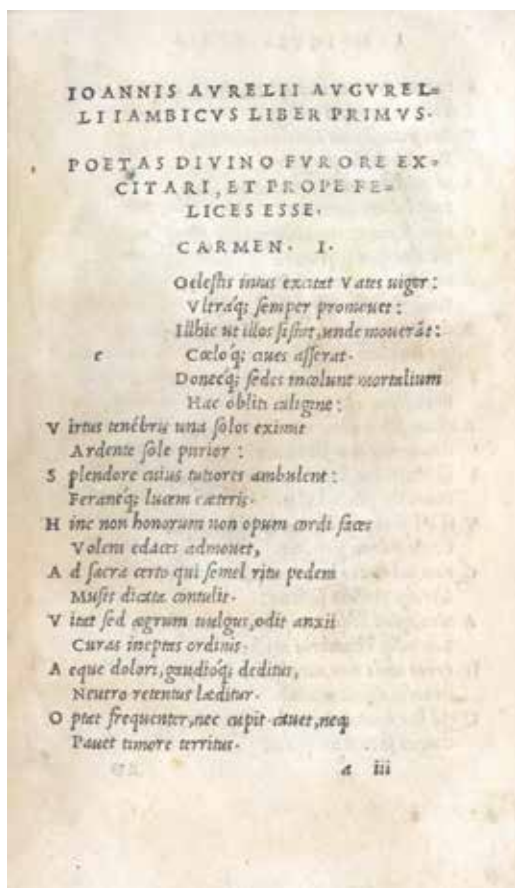 IOANNIS AVRELII AVGVREL=
LI IAMBICVS LIBER PRIMVS.
POETAS DIVINO FVRORE EX=
CITARI, ET PROPE FE=
LICES ESSE.
CARMEN. I.
Oelestis intus excitat Vates uigor:
Vltráq; semper promouet:
Illhic ut illos sistat, unde mouerāt:
e Cœlóq; ciues asserat.
Donecq; sedes incolunt mortalium
Hac obliti caligine:
V irtus tenebris una solos eximit
Ardente sole purior:
S plendore cuius tutiores ambulent:
Ferantq; lucem cæteris.
H inc non honorum non opum cordi faces
Volens edaces admouet,
A d sacra certo qui semel ritu pedem
Musis dicata contulit.
V itat sed ægrum uulgus, odit anxii
Curas ineptas ordinis.
A eque dolori, gaudióq; deditus,
Neutro retentus læditur.
O ptat frequenter, nec cupit. cauet, neq;
Pauet timore territus.
a iii